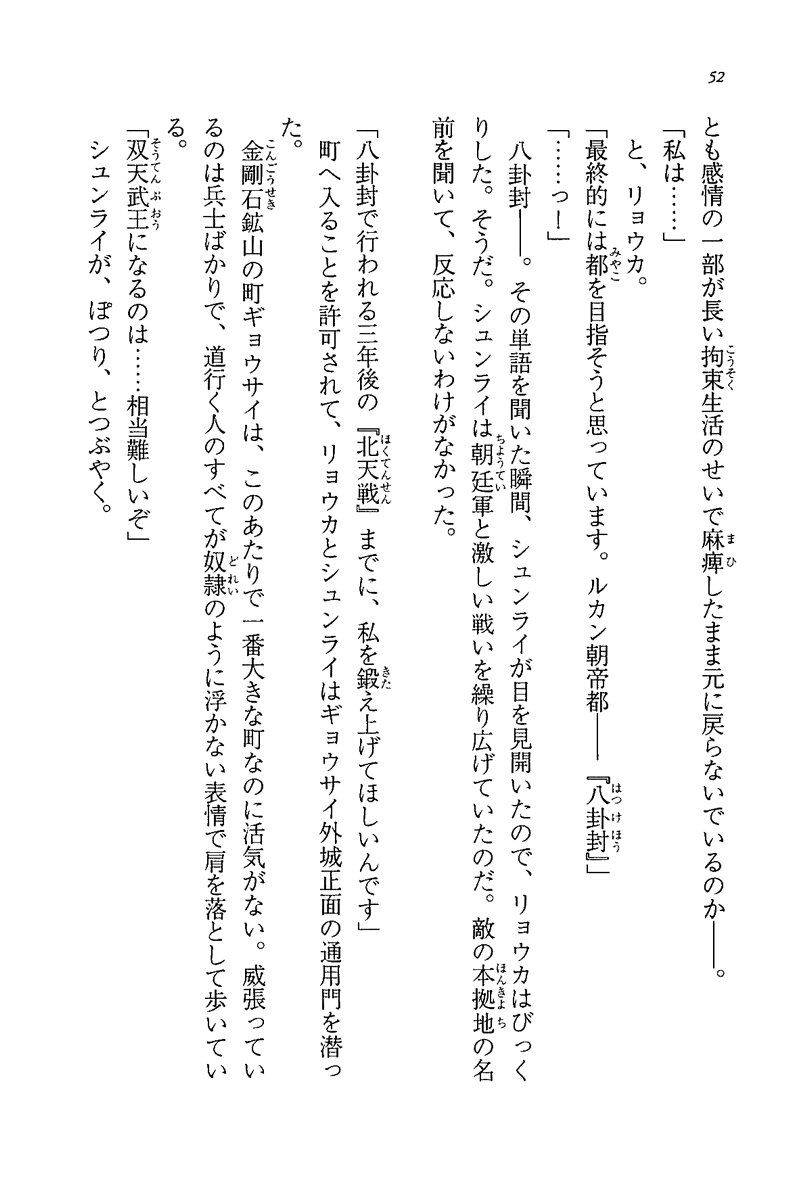 52
とも感情の一部が長い拘束生活のせいで麻痺したまま元に戻らないでいるのか――。
「私は……」
と、リョウカ。
「最終的には都を目指そうと思っています。ルカン朝帝都――『八卦封』」
「……っ！」
八卦封――。その単語を聞いた瞬間、シュンライが目を見開いたので、リョウカはびっく
りした。そうだ。シュンライは朝廷軍と激しい戦いを繰り広げていたのだ。敵の本拠地の名
前を聞いて、反応しないわけがなかった。
「八卦封で行われる三年後の『北天戦』までに、私を鍛え上げてほしいんです」
町へ入ることを許可されて、リョウカとシュンライはギョウサイ外城正面の通用門を潜っ
た。
金剛石鉱山の町ギョウサイは、このあたりで一番大きな町なのに活気がない。威張ってい
るのは兵士ばかりで、道行く人のすべてが奴隷のように浮かない表情で肩を落として歩いてい
る。
「双天武王になるのは……相当難しいぞ」
シュンライが、ぽつり、とつぶやく。